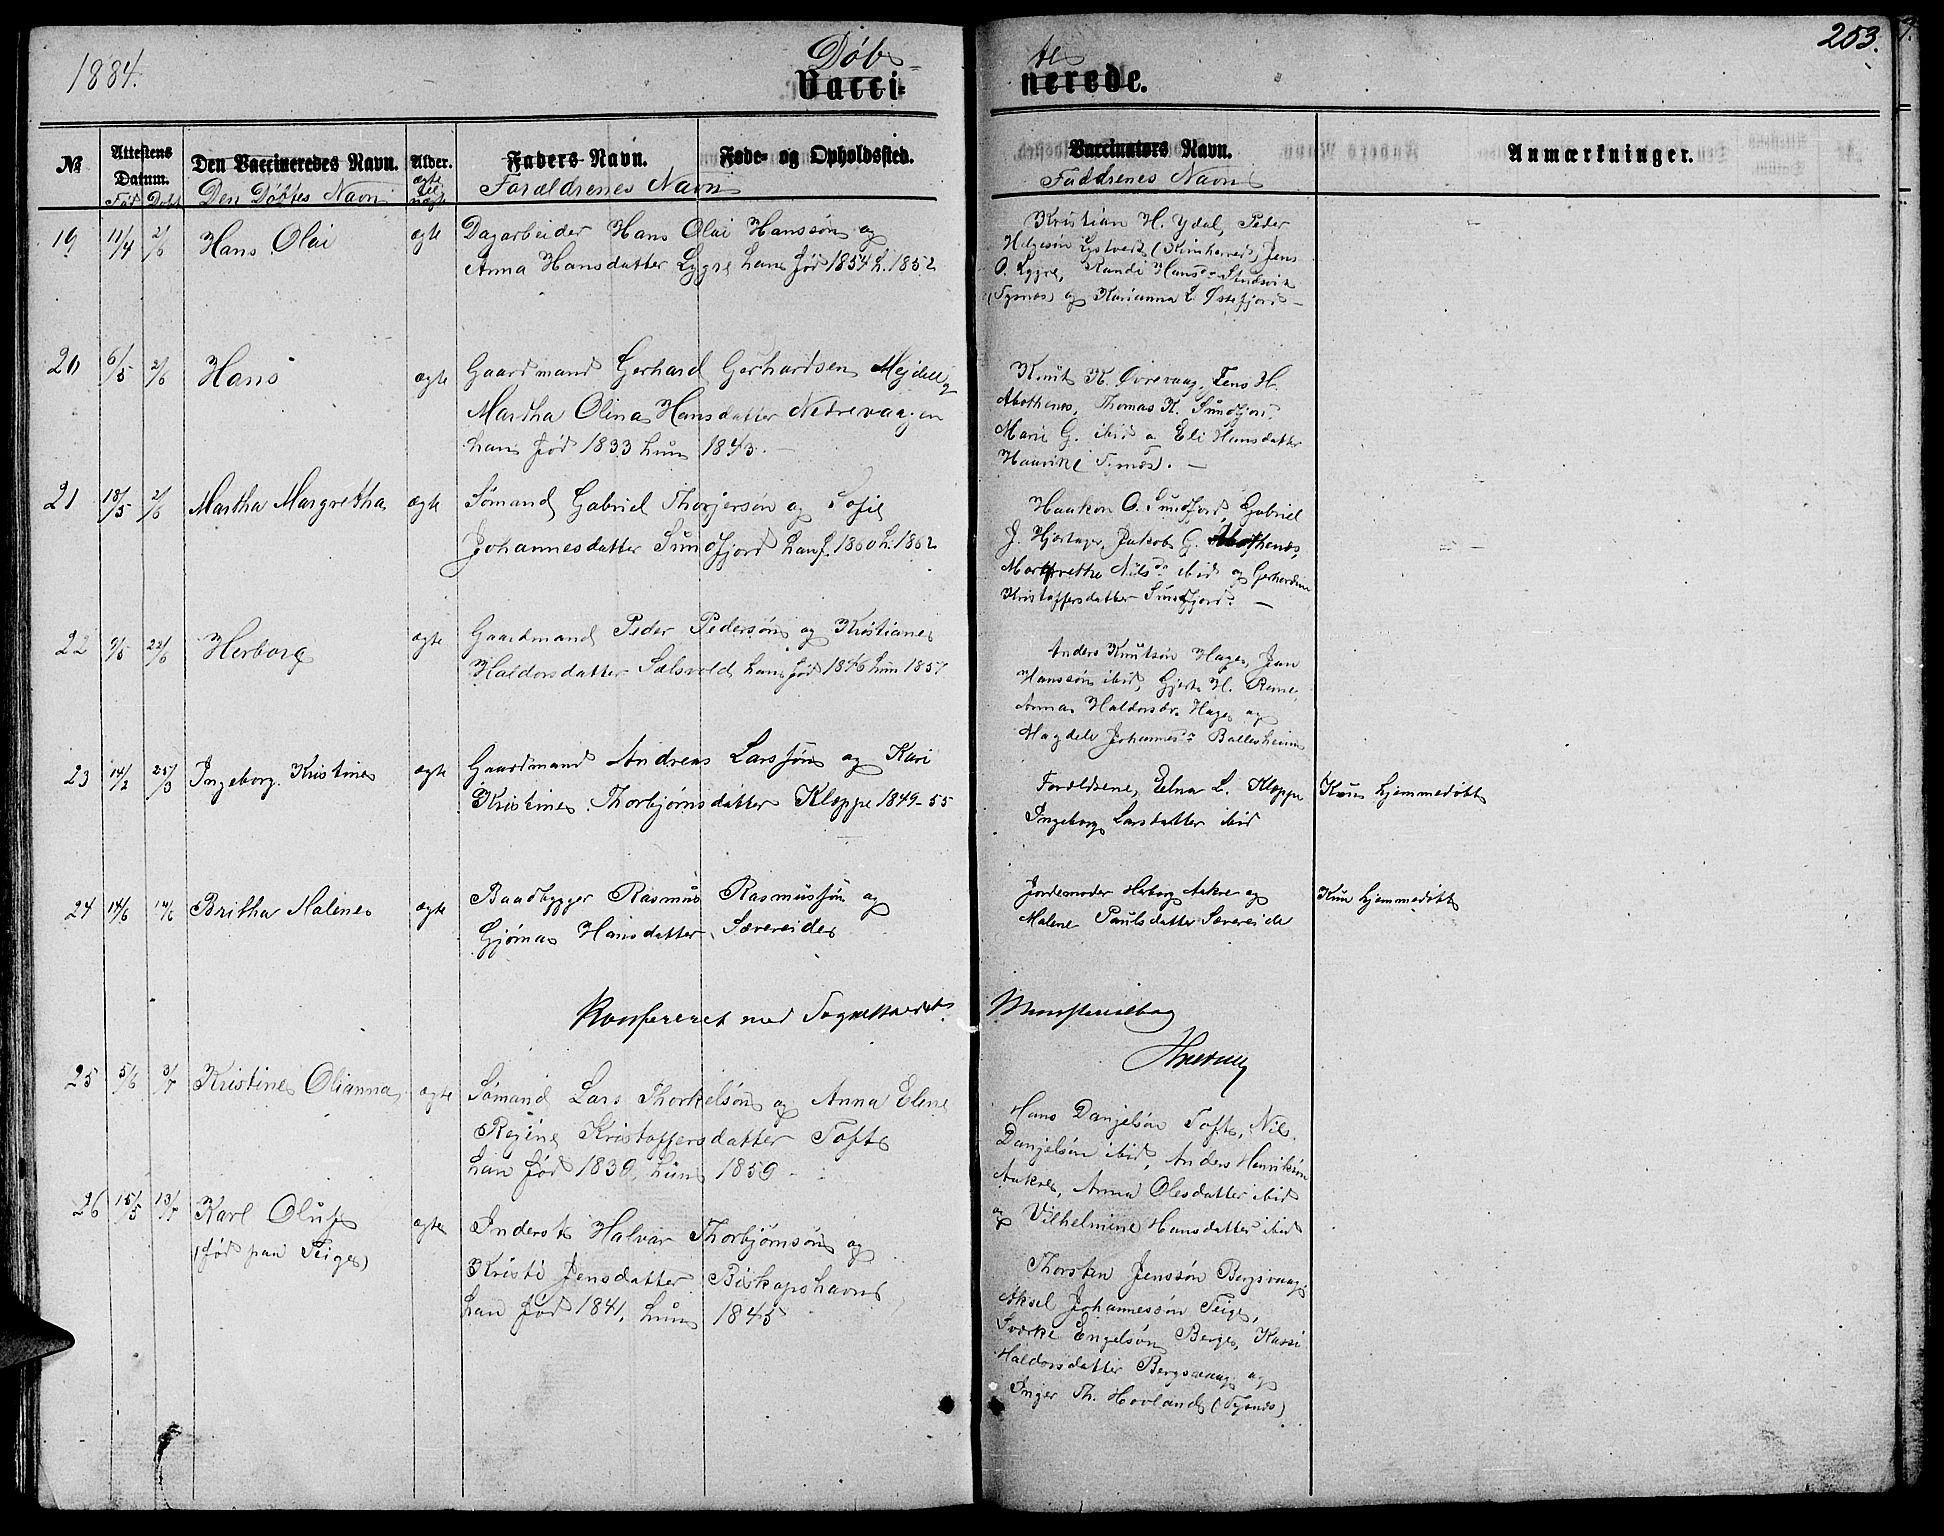 1884.
Døbte
253.
Vaccinerede.
№
Attestens Datum.
Den Vaccineredes Navn.
Alder.
Faders Navn.
Føde- og Opholdssted.
Vaccinators Navn.
Anmærkninger.
Fød Døbt
Den Døbtes Navn
ægte el. uægte
Forældrenes Navn
Faddrenes Navn
19 11/4 2/6 Hans Olai ægte Dagarbeider Hans Olai Hanssøn og
Anna Hansdatter Lygre han fød 1854 h. 1852
Kristian H. Ydal, Peder
Helgesøn Lystvedt (Kvinherred), Jens
O. Lygre, Randi Hansdr
(Tysnes) og Karianna L. Østefjord –
20 6/5 2/6 Hans ægte Gaardmand Gerhard Gerhardsen Mejdell og
Martha Olina Hansdatter Nedrevaagen
han fød 1833 hun 1843. –
Knut K. Øvrevaag, Jens H.
Abothenes, Thomas K. Sundfjord
Marie G. ibid o Eli Hansdatter
21 18/5 2/6 Martha Margretha ægte Sømand Gabriel Thorjersøn og Sofie
Johannesdatter Sundfjord han f. 1860 h. 1862
Haakon O. Sundfjord, Gabriel
J. Hjertager, Jakob G. Abothenes,
Margrethe Nilsdr ibid og Gerhardine
Kristoffersdatter Sundfjord. –
22 9/5 22/6 Herborg ægte Gaardmand Peder Pedersøn og Kristiane
Haldorsdatter Sælsvold han fød 1846 hun 1857
Anders Knutsøn Hage, Jan
Hanssøn ibid, Gjert H. Reme,
Anna Haldorsdr. Hage og
Magdele Johannesdr Ballesheim
23 14/2 25/3 Ingeborg Kristine ægte Gaardmand Andreas Larssøn og Kari
Kristine Thorbjørnsdatter Kleppe 1849-55
Forældrene, Edna L. Kleppe
Ingeborg Larsdatter ibid
Kun hjemmedøbt
24 14/6 14/6 Britha Malene ægte Baadbygger Rasmus Rasmussøn og
Gjøma Hansdatter Sævereide
Jordemoder Herborg Aakre og
Malene Paulsdatter Sævereide
Kun hjemmedøbt
Konfereret med Sognepræstens Ministerialbog
25 5/6 3/7 Kristine Olianna ægte Sømand Lars Thorkelsøn og Anna Elene
Regine Kristoffersdatter Tofte
han fød 1830, hun 1850 –
Hans Danjelsøn Tofte, Nils
Danjelsøn ibid, Anders Henriksøn
Aakre, Anna Olesdatter ibid
og Vilhelmine Hansdatter ibid
26 15/5 13/7 Karl Oluf ægte Inderst Halvar Thorbjørnsøn og
(født paa Teige)
Kristi Jensdatter Biskopshavn
han fød 1841, hun 1845
Thorsten Jenssøn Bergsvaag,
Aksel Johannessøn Teige,
Sværke Engelsøn Berge, Kari
Haldorsdatter Bergsvaag og
Inger Th. Hovland (Tysnes)